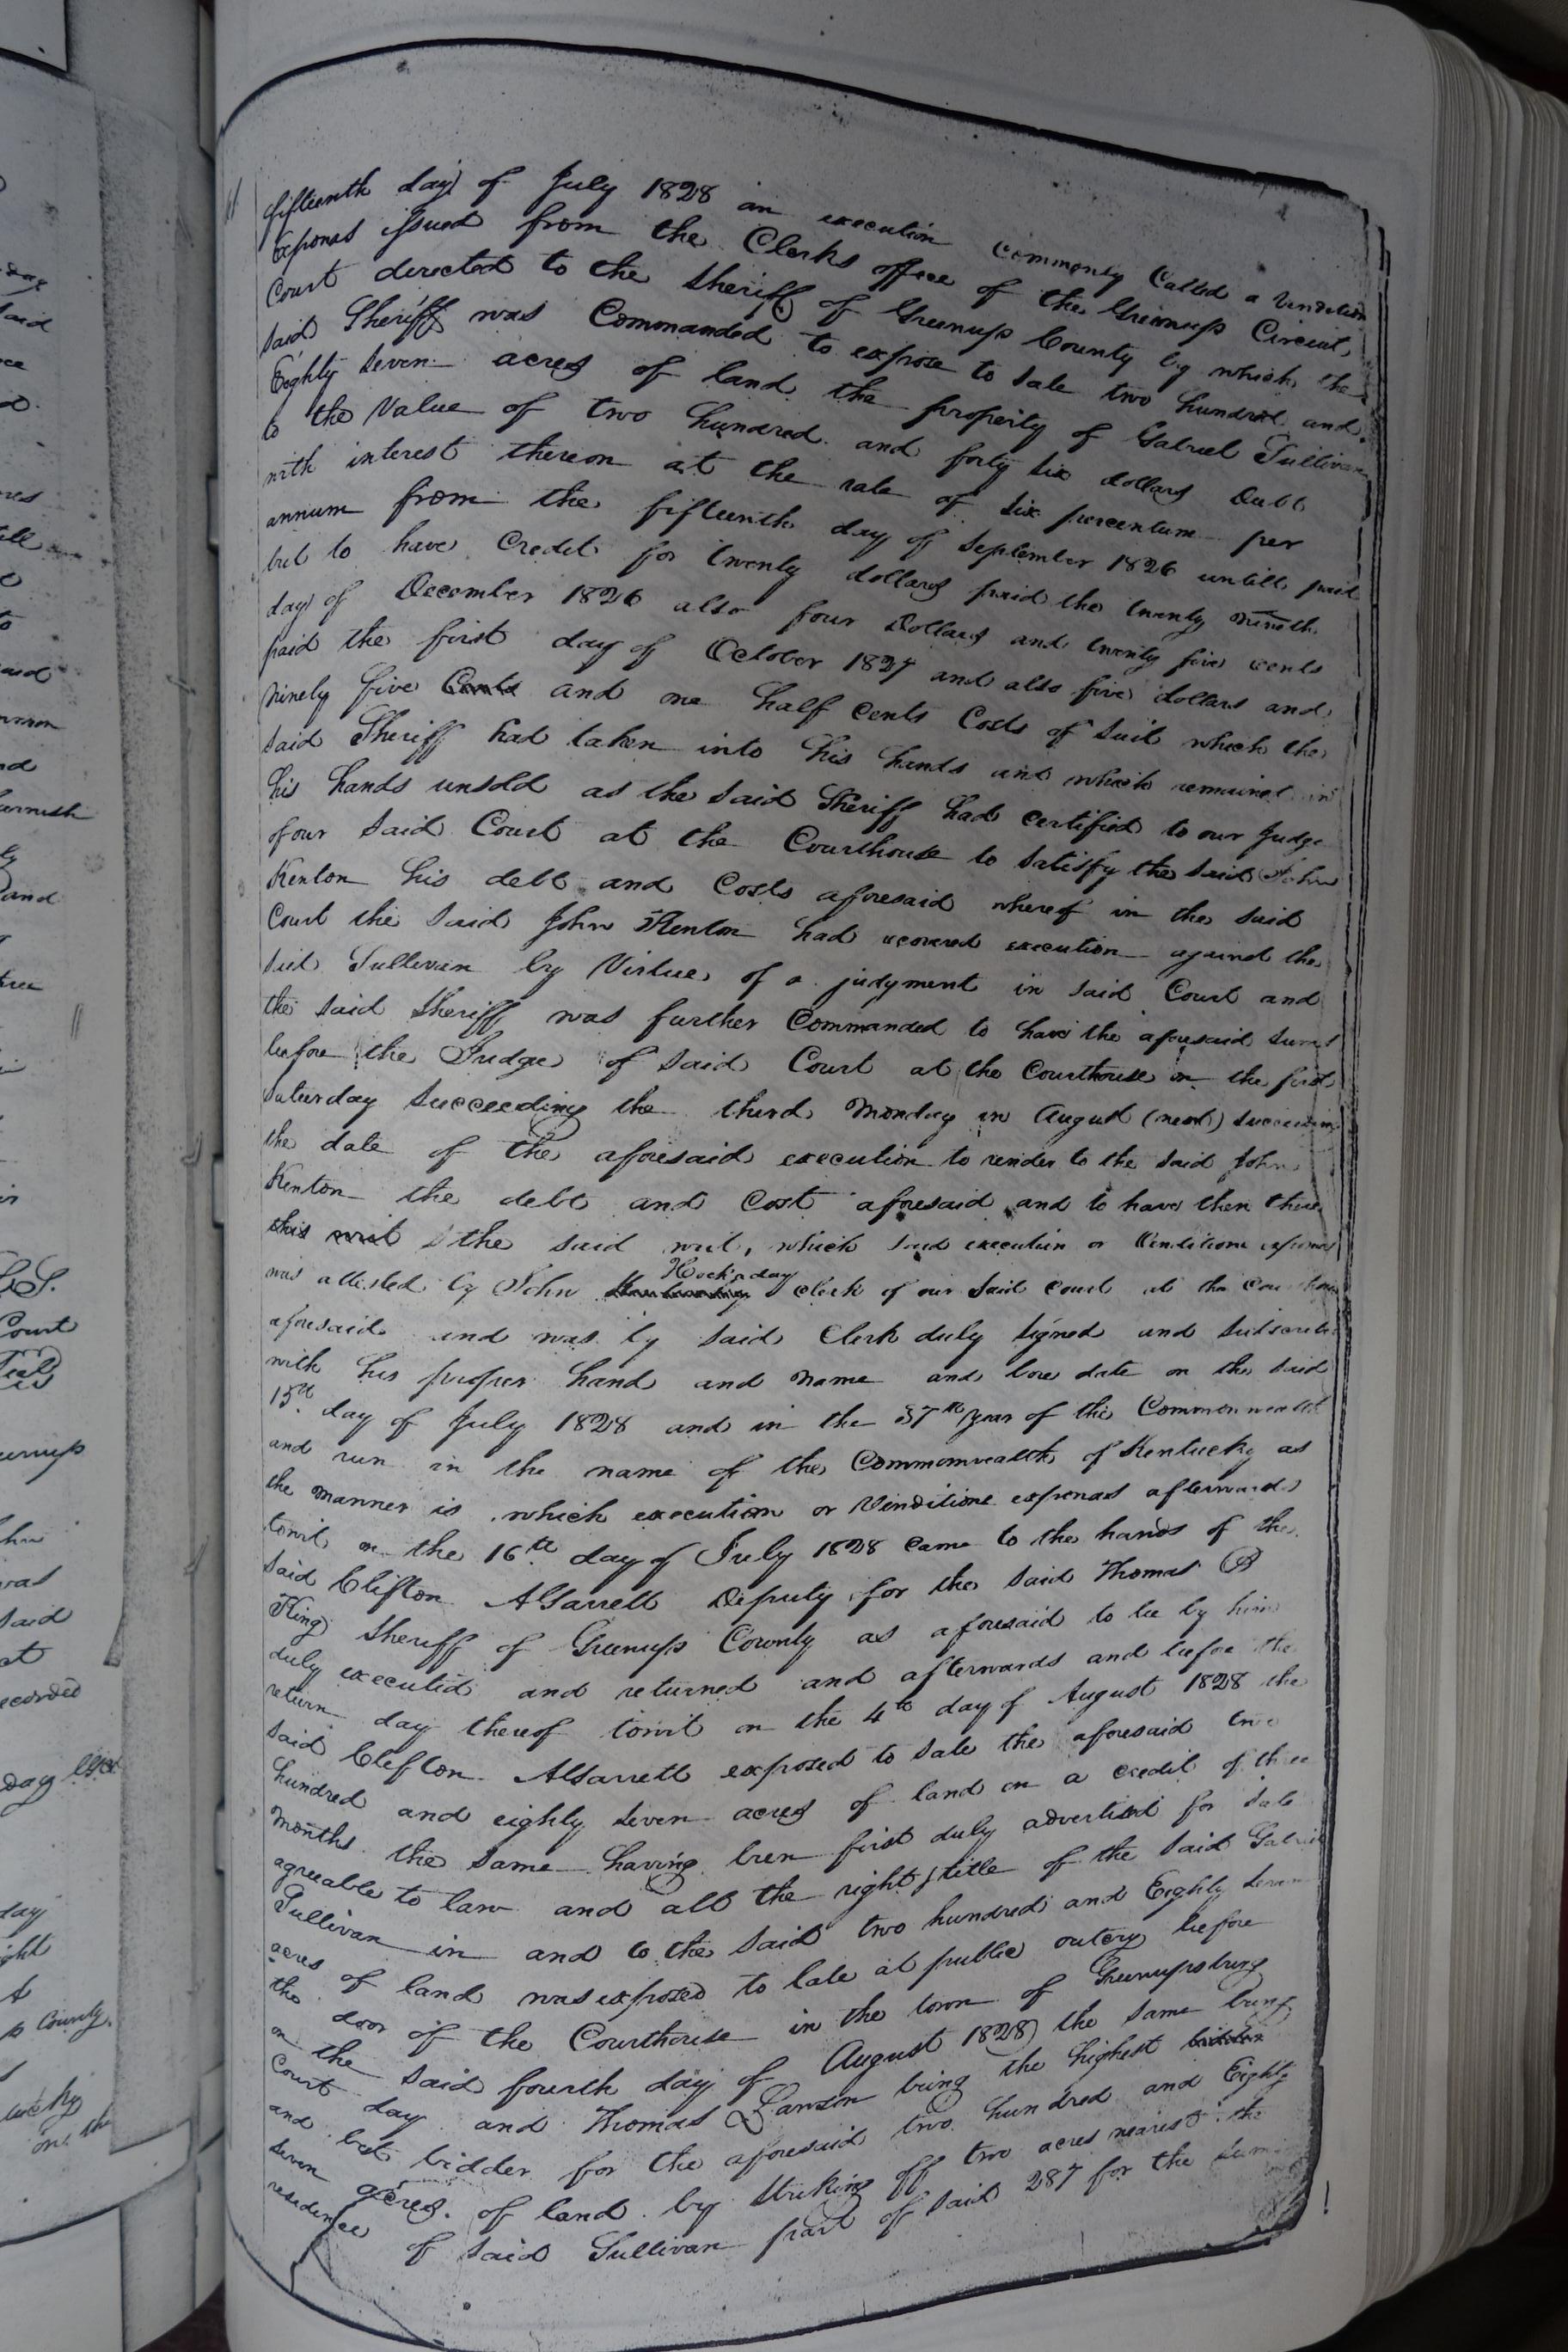 fifteenth day of July 1828 an execution commonly Called a Venditioni
Exponas issued from the Clerks office of the Greenup Circuit
Court directed to the Sheriff of Greenup County by which the
said Sheriff was Commanded to expose to sale two hundred and
Eighty Seven acres of land the property of Gabriel Sullivan
to the Value of two hundred and forty six dollars Debt
with interest thereon at the rate of six percentum per
annum from the fifteenth day of September 1826 untill paid
but to have Credit for twenty dollars paid the twenty nineth
day of December 1826 also four Dollars and twenty five cents
paid the first day of October 1827 and also five dollars and
ninety five Cents and one half Cents Costs of suit which the
said Sheriff had taken into his hands and which remained in
his hands unsold as the said Sheriff had certified to our Judge
of our said Court at the Courthouse to satisfy the said John
Kenton his debt and Costs aforesaid whereof in the said
Court the said John Kenton had execution against the
said Sullivan by Virtue of a judgment in said Court and
the said Sheriff was further Commanded to have the aforesaid sums
before the Judge of said Court at the Courthouse on the first
Saturday Succeeding the third Monday in August (next) succeeding
the date of the aforesaid execution to render to the said John
Kenton the debt and Cost aforesaid and to have then there
this writ the said writ, which said execution or Venditioni exponas
was attested by John Hockaday Clerk of our said Court at the Courthouse
aforesaid and was by said Clerk duly signed and subscribed
with his proper hand and name and bore date on the said
15th day of July 1828 and in the 37th year of the Commonwealth
and run in the name of the Commonwealth of Kentucky as
the manner is which execution or Venditione exponas afterwards
towit on the 16th day of July 1828 came to the hands of the
said Clifton Deputy for the said Thomas B
King Sheriff of Greenup County as aforesaid to be by him
duly executed and returned and afterwards and before the
return day thereof towit on the 4th day of August 1828 the
said Clefton exposed to sale the aforesaid two
hundred and eighty seven acres of land on a credit of three
months the same having been first duly advertised for sale
agreeable to law and all the right title of the said Gabriel
Sullivan in and to the said two hundred and Eighty seven
acres of land was exposed to sale at public outcry before
the door of the Courthouse in the town of Greenupsburg
on the said fourth day of August 1828) the same being
Court day and Thomas Lawson being the highest bidder
and best bidder for the aforesaid two hundred and Eighty
seven acres of land by striking off two acres nearest the
residence of said Sullivan part of said 287 for the sum